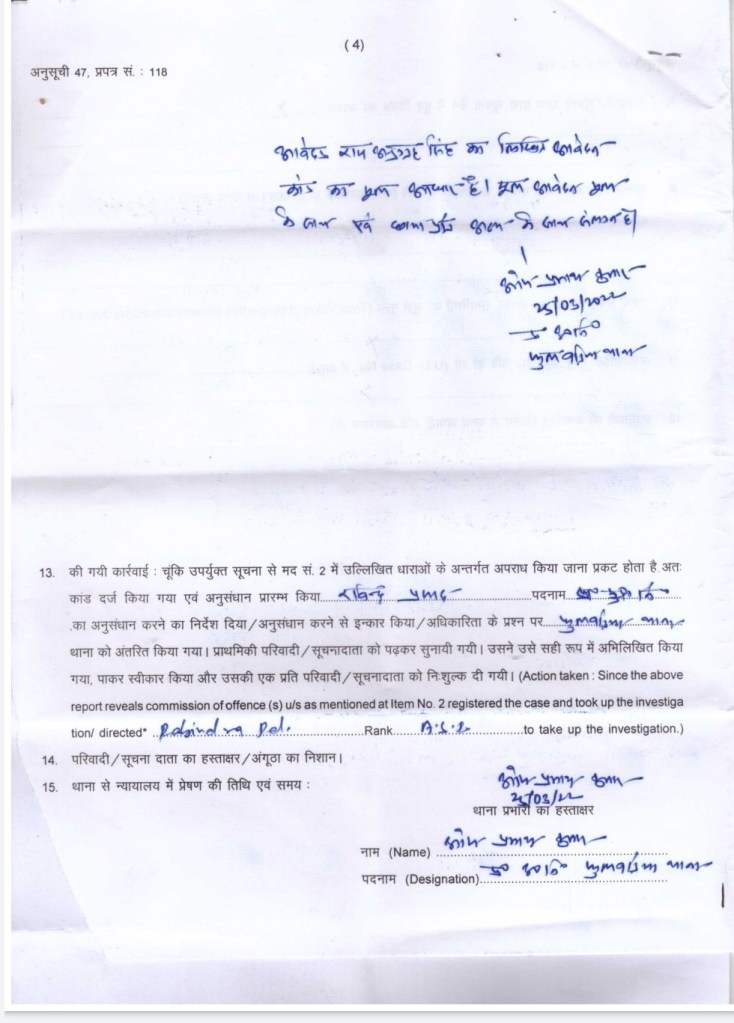 (4)
अनुसूची 47, प्रपत्र सं. : 118
आवेदक राम अनुग्रह सिंह का लिखित आवेदन
कांड का मूल आधार है। मूल आवेदन मूल
के साथ एवं छाया प्रति अन्य के साथ संलग्न है।
ओम प्रकाश कुमार
25/03/2022
थाना
13. की गयी कार्रवाई : चूंकि उपर्युक्त सूचना से मद सं. 2 में उल्लिखित धाराओं के अन्तर्गत अपराध किया जाना प्रकट होता है, अतः
कांड दर्ज किया गया एवं अनुसंधान प्रारम्भ किया रविन्द्र प्रसाद पदनाम
.का अनुसंधान करने का निर्देश दिया/अनुसंधान करने से इन्कार किया/अधिकारिता के प्रश्न पर थाना
थाना को अंतरित किया गया। प्राथमिकी परिवादी/सूचनादाता को पढ़कर सुनायी गयी। उसने उसे सही रूप में अभिलिखित किया
गया, पाकर स्वीकार किया और उसकी एक प्रति परिवादी/सूचनादाता को निःशुल्क दी गयी। (Action taken : Since the above
report reveals commission of offence (s) u/s as mentioned at Item No. 2 registered the case and took up the investiga
tion/ directed* Rabindra Rank A.S.I. to take up the investigation.)
14. परिवादी/सूचना दाता का हस्ताक्षर/अंगूठा का निशान।
15. थाना से न्यायालय में प्रेषण की तिथि एवं समय :
ओम प्रकाश कुमार
25/03/22
थाना प्रभारी का हस्ताक्षर
नाम (Name) ओम प्रकाश कुमार
पदनाम (Designation) थाना